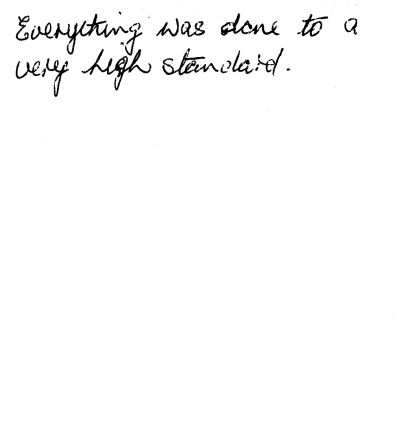 Everything was done to a
very high standard.